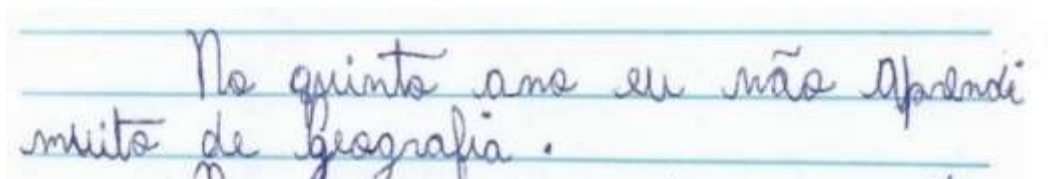 No quinto ano eu não Aprendi
muito de geografia.